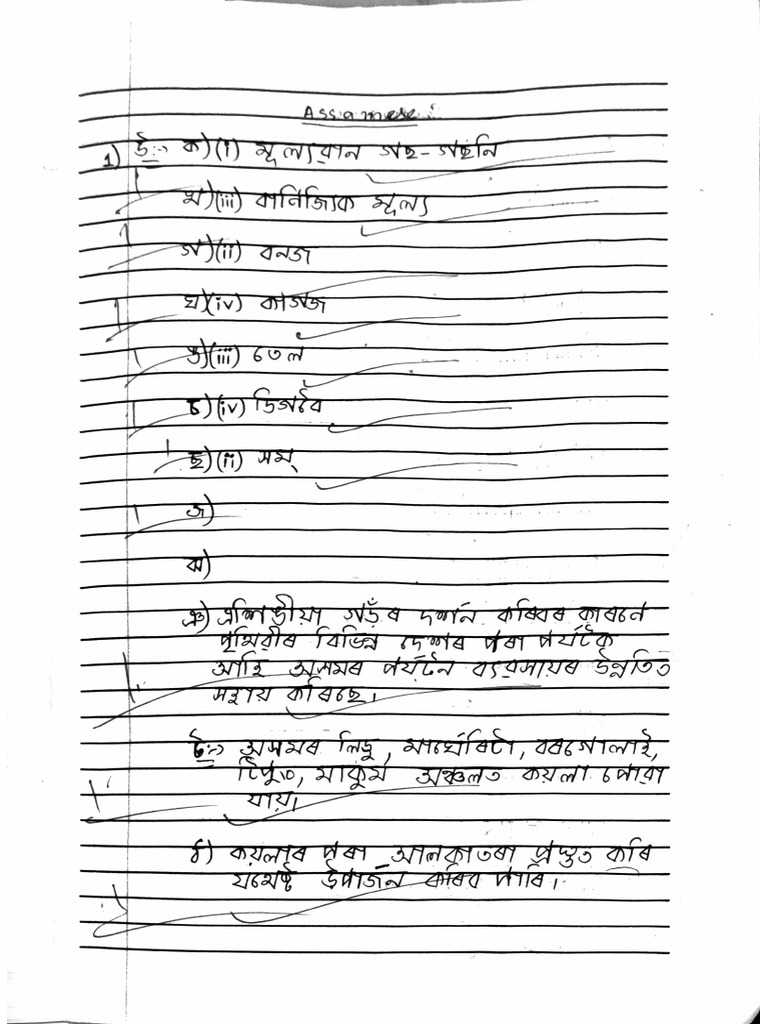 Assamese :
1) উঃ-> ক)(i) মূল্যৱান গছ-গছনি
খ)(iii) বানিজ্যিক মূল্য
গ)(ii) বনজ
ঘ)(iv) কাগজ
ঙ)(iii) তেল
চ)(iv) ডিগবৈ
ছ)(ii) সম্
জ)
ঝ)
ঞ) এশিঙীয়া গড়ঁৰ দৰ্শন কৰিবৰ কাৰনে
পৃথিৱীৰ বিভিন্ন দেশৰ পৰা পৰ্যটক
আহি অসমৰ পৰ্যটন ব্যৱসায়ৰ উন্নতিত
সহায় কৰিছে।
ট:-> অসমৰ লিডু, মাৰ্ঘেৰিটা, বৰগোলাই,
টিপুঙ, মাকুম অঞ্চলত কয়লা পোৱা
যায়।
ঠ) কয়লাৰ পৰা আলকাতৰা প্ৰস্তুত কৰি
যথেষ্ট উপাৰ্জন কৰিব পাৰি।